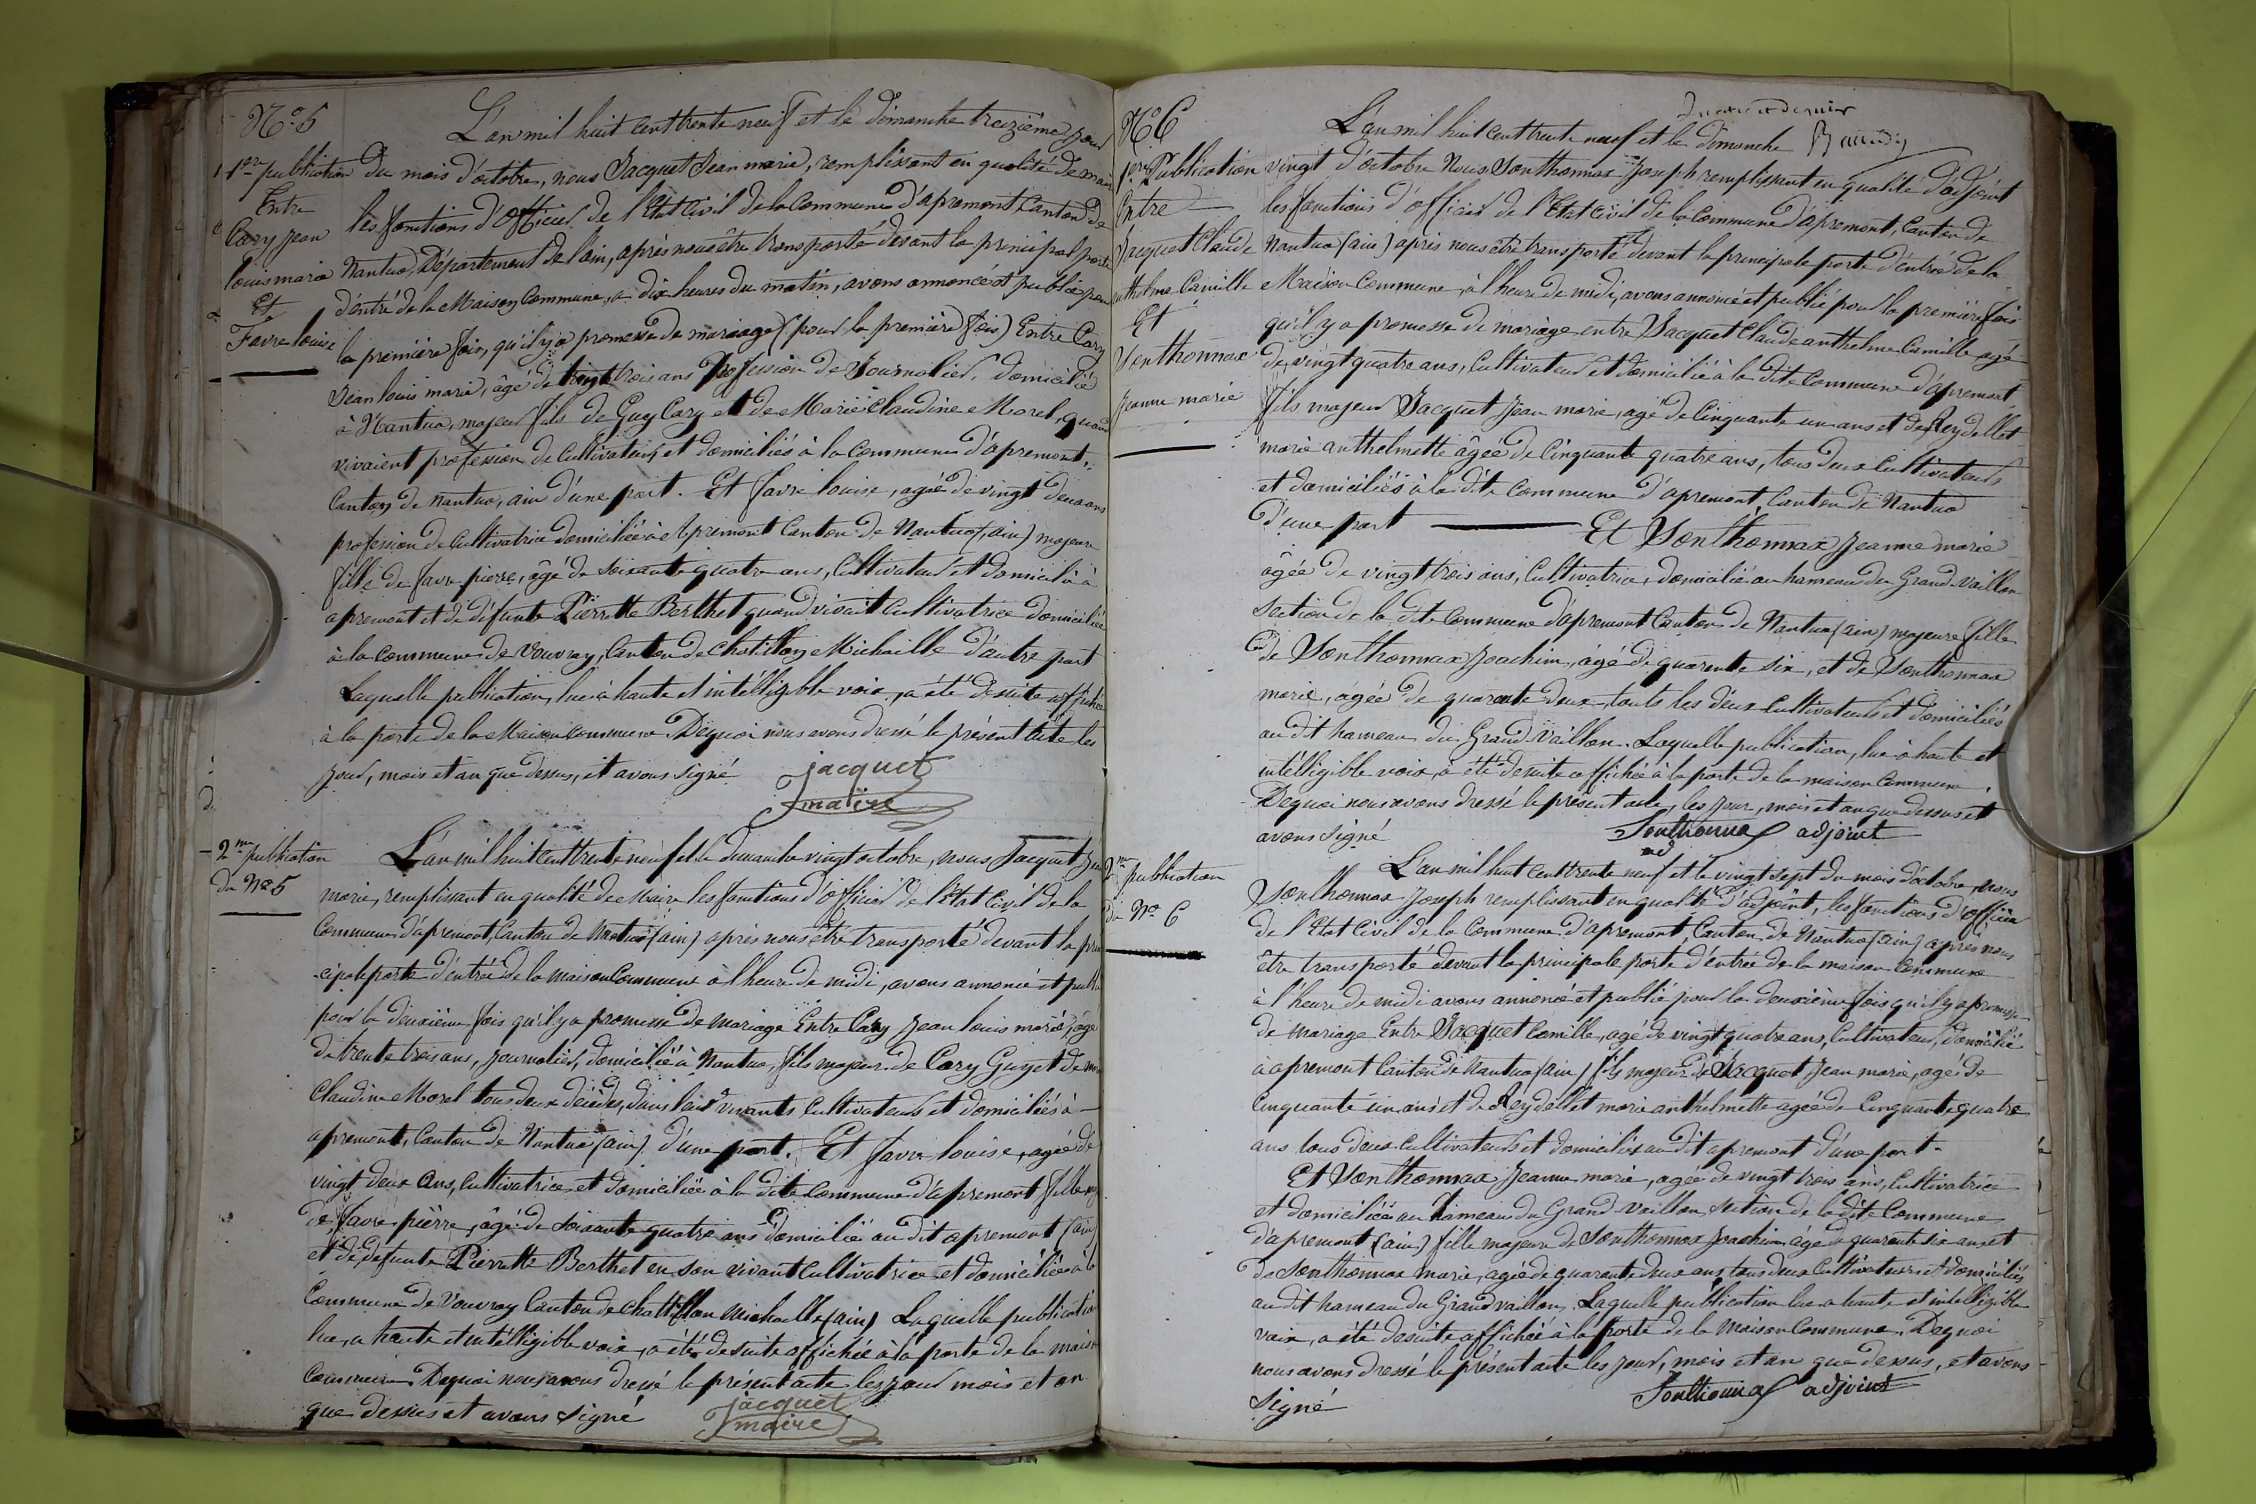 N.o 5
1.ere publication
Entre
Cary jean
louis marie
Et
Favre louise
L'an mil huit cent trente neuf et le dimanche treizième jour
du mois d'octobre, nous Jacquet Jean marie, remplissant en qualité de maire
les fonctions d'officier de l'Etat Civil de la Commune d'apremont Canton de
Nantua, Département de l'ain, après nous être transporté devant la principal porte
d'entré de la Maison Commune, a dix heures du matin, avons annoncé et publié pour
la première fois, qu'il y a promesse de mariage (pour la première fois) Entre Cary
Jean louis marie, âgé de trente trois ans Profession de Journalier, domicilié
à Nantua, majeur fils de Guy Cary et de Marie Claudine Morel, quand
vivaient profession de Cultivateurs et domiciliés à la Commune d'apremont,
Canton de nantua, ain d'une part. Et favre louise, agée de vingt deux ans
profession de Cultivatrice domiciliée à Apremont Canton de Nantua (ain) majeure
fille de favre pierre, âgé de soixante quatre ans, Cultivateur et domicilié à
apremont et de défunte Pierrette Berthet quand vivait Cultivatrice domiciliée
à la commune de Vouvray, Canton de Chatillon Michaille d'autre part
Laquelle publication, lue à haute et intélligible voix, a été de suite affichée
à la porte de la Maison commune Dequoi nous avons dressé le présent acte les
jour, mois et an que dessus, et avons signé
jacquet
maire
2.me publication
du N.o 5
L'an mil huit cent trente neuf et le dimanche vingt octobre, nous Jacquet Jean
marie, remplissant en qualité de Maire les fonctions d'officier de l'Etat Civil de la
Commune d'apremont, Canton de Nantua (ain) après nous être transporté devant la prin
cipale porte d'entrée de la maison Commune à l'heure de midi, avons annoncé et publié
pour la deuxième fois qu'il y a promesse de mariage Entre Cary Jean louis marie, âgé
de trente trois ans, journalier, domicilié à Nantua, fils majeur de Cary Guy et de marie
Claudine Morel tous deux décédés, dans leur vivants Cultivateurs et domiciliés à
apremont, Canton de Nantua (ain) d'une part. Et favre louise, agée de
vingt deux ans, Cultivatrice et domiciliée à la dite Commune d'apremont fille
de favre pierre, âgé de soixante quatre ans domicilié au dit apremont (ain)
et de défunte Pierrette Berthet en son vivant Cultivatrice et domiciliée à la
Commune de Vouvray Canton de Chatillon Michaille (ain) Laquelle publication
lue, a haute et intélligible voix, a été de suite affichée à la porte de la maison
Commune Dequoi nous avons dressé le présent acte les jour mois et an
que dessus et avons signé
jacquet
maire
N.o 6
1.ere Publication
Entre
Jacquet Claude
anthelme Camille
Et
Sonthonnax
Jeanne marie
L'an mil huit cent trente neuf et le dimanche
vingt d'octobre Nous Sonthonnax Joseph remplissant en qualité d'adjoint
les fonctions d'officier de l'Etat Civil de la Commune d'apremont, Canton de
Nantua (ain) après nous être transporté devant la principale porte d'entrée de la
Maison Commune, à l'heure de midi, avons annoncé et publié pour la première fois
qu'il y a promesse de mariage entre Jacquet Claude anthelme Camille agé
de vingt quatre ans, Cultivateur et domicilié à la dite Commune d'apremont
fils majeur Jacquet Jean marie, agé de Cinquante un ans et de Reydellet
marie anthelmette âgée de Cinquante quatre ans, tous deux Cultivateurs
et domiciliés à la dite commune d'apremont, Canton de Nantua
d'une part Et Sonthonnax Jeanne marie
âgée de vingt trois ans, Cultivatrice, domicilié au hameau du Grand vaillon
section de la dite commune d'apremont Canton de Nantua (ain) majeure fille
de Sonthonnax Joachim, âgé de quarante six, et de Sonthonnax
marie, agée de quarante deux, touts les deux Cultivateurs et domiciliés
au dit hameau du Grand Vaillon. Laquelle publication, lue à haute et
intélligible voix, a été de suite affichée à la porte de la maison Commune
Dequoi nous avons dressé le présent acte, les jour, mois et an que dessus et
avons signé
Sonthonnax adjoint
2.me publication
du N.o 6
L'an mil huit cent trente neuf et le vingt sept du mois d'octobre, nous
Sonthonnax Joseph remplissant en qualité d'adjoint, les fonctions d'officier
de l'Etat Civil de la Commune d'apremont, Canton de Nantua (ain) après nous
être transporté devant la principale porte d'entrée de la maison commune
à l'heure de midi avons annoncé et publié pour la deuxième fois qu'il y a promesse
de mariage Entre Jacquet Camille, agé de vingt quatre ans, Cultivateur, domicilié
à apremont Canton de Nantua (ain) fils majeur de Jacquet Jean marie, agé de
Cinquante un ans et de Reydellet marie anthelmette agée de Cinquante quatre
ans tous deux Cultivateurs et domiciliés au dit apremont d'une part.
Et Sonthonnax Jeanne marie, agée de vingt trois ans, Cultivatrice
et domiciliée au hameau du Grand vaillon, section de la dite Commune
d'apremont (ain) fille majeure de Sonthonnax Joachim âgé de quarante six ans et
de Sonthonnax marie, agée de quarante deux ans, tous deux Cultivateurs et domiciliés
au dit hameau du Grand vaillon. Laquelle publication lue a haute et intelligible
voix, a été de suite affichée à la porte de la maison Commune. Dequoi
nous avons dressé le présent acte les jour, mois et an que dessus, et avons
signé
Sonthonnax adjoint